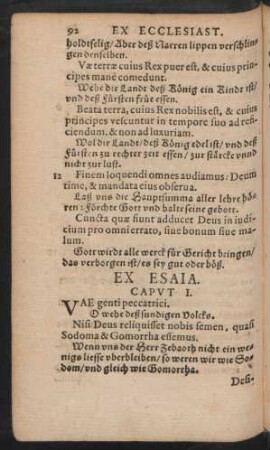 92 EX ECCLESIAST.
holdtselig/ Aber deß Narren lippen verschlin-
gen denselben.
Væ terræ cuius Rex puer est, & cuius prin-
cipes manè comedunt.
Wehe dir Landt deß König ein Kindt ist/
vnd deß Fürsten früe essen.
Beata terra, cuius Rex nobilis est, & cuius
principes vescuntur in tempore suo ad refi-
ciendum, & non ad luxuriam.
Wol dir Landt/ deß König edel ist/ vnd deß
Fürsten zu rechter zeit essen/ zur stärcke vnnd
nicht zur lust.
12 Finem loquendi omnes audiamus: Deum
time, & mandata eius obserua.
Laß vns die Hauptsumma aller lehre hö-
ren: Förchte Gott vnd halte seine gebott.
Cuncta quæ fiunt adducet Deus in iudi-
cium pro omni errato, siue bonum siue ma-
lum.
Gott wirdt alle werck für Gericht bringen/
das verborgen ist/ es sey gut oder böß.
EX ESAIA.
CAPVT I.
VAE genti peccatrici.
O wehe deß sundigen Volcks.
Nisi Deus reliquisset nobis semen, quasi
Sodoma & Gomorrha essemus.
Wenn vns der Herr Zebaoth nicht ein we-
nigs liesse vberbleiben/ so weren wir wie So-
dom/ vnd gleich wie Gomorrha.
Desi-